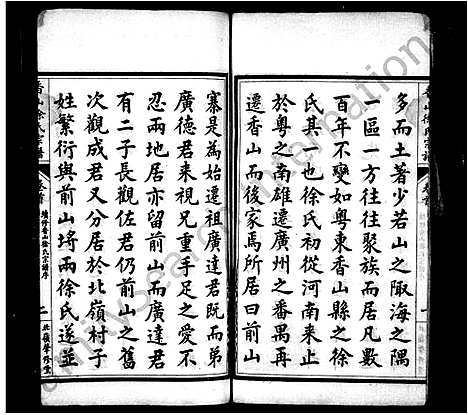 多而土著少若山之陬海之隅
一區一方往往聚族而居凡數
百年不變如粵東香山縣之徐
氏其一也徐氏初從河南来止
於粵之南雄遷廣州之番禺再
遷香山而後家焉所居曰前山
寨是為始遷祖廣達君既而弟
廣德君来視兄重手足之愛不
忍兩地居亦留前山而廣達君
有二子長觀佐君仍前山之舊
次觀成君又分居於北嶺村子
姓繁衍與前山埓兩徐氏遂並
香山徐氏宗譜
卷首
續修香山徐氏宗譜序
二
北嶺華修堂